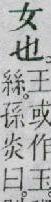 女也
王或作玉
絲孫炎曰